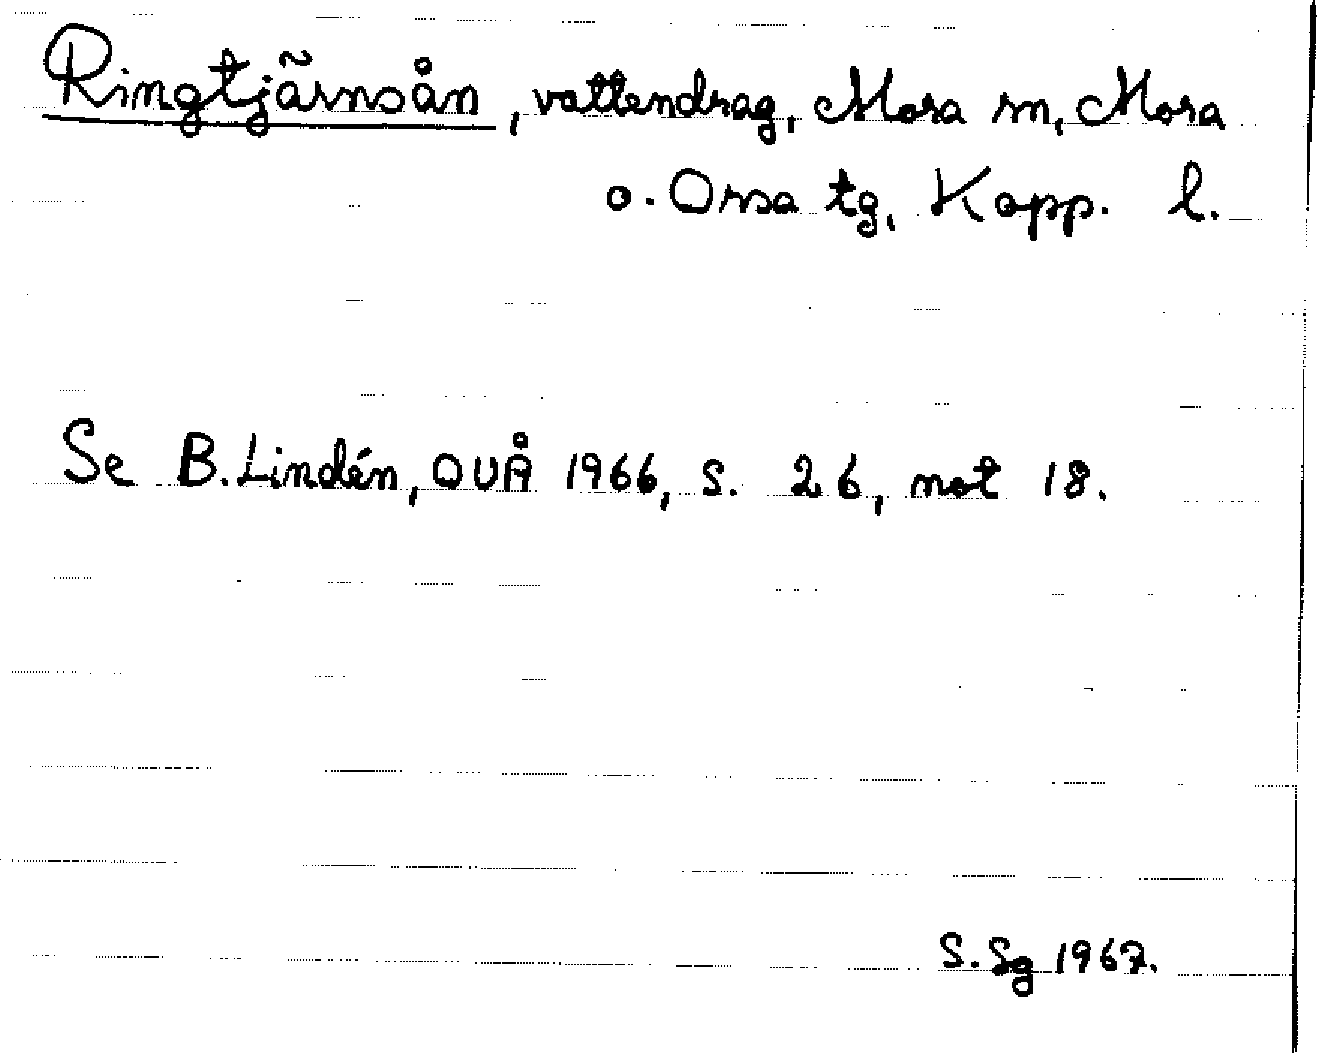 Ringtjärnsån, vattendrag, Mora sn, Mora
o. Orsa tg, Kopp. l.
Se B. Lindén, OUÅ 1966, s. 26, not 18.
S. Sg 1967.